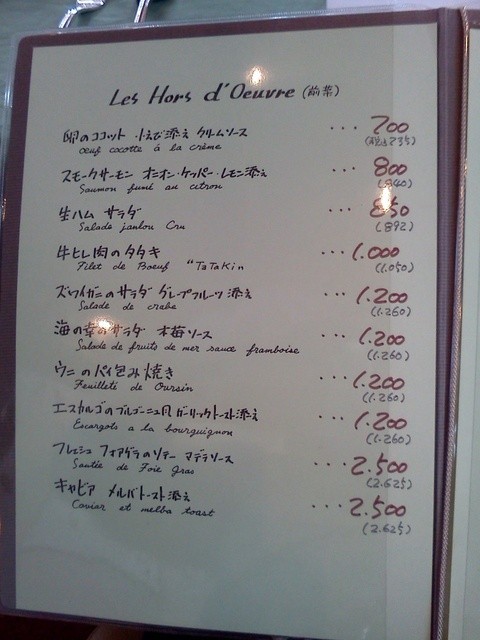 Les Hors d'Oeuvre (前菜)
卵のココット 小えび添え クリームソース ... 700
oeuf cocotte á la crème (税込735)
スモークサーモン オニオン・ケッパー・レモン添え ... 800
Saumon fumé au citron (840)
生ハム サラダ ... 850
Salade janbou Cru (892)
牛ヒレ肉のタタキ ... 1.000
Filet de Boeuf "TaTaKin (1.050)
ズワイガニのサラダ グレープフルーツ添え ... 1.200
Salade de crabe (1.260)
海の幸のサラダ 木苺ソース ... 1.200
Salade de fruits de mer sauce framboise (1.260)
ウニのパイ包み焼き ... 1.200
Feuilleti de Oursin (1.260)
エスカルゴのブルゴーニュ風 ガーリックトースト添え ... 1.200
Escargots a la bourguignon (1.260)
フレッシュ フォアグラのソテー マデラソース ... 2.500
Sautée de Foie gras (2.625)
キャビア メルバトースト添え ... 2.500
Caviar et melba toast (2.625)